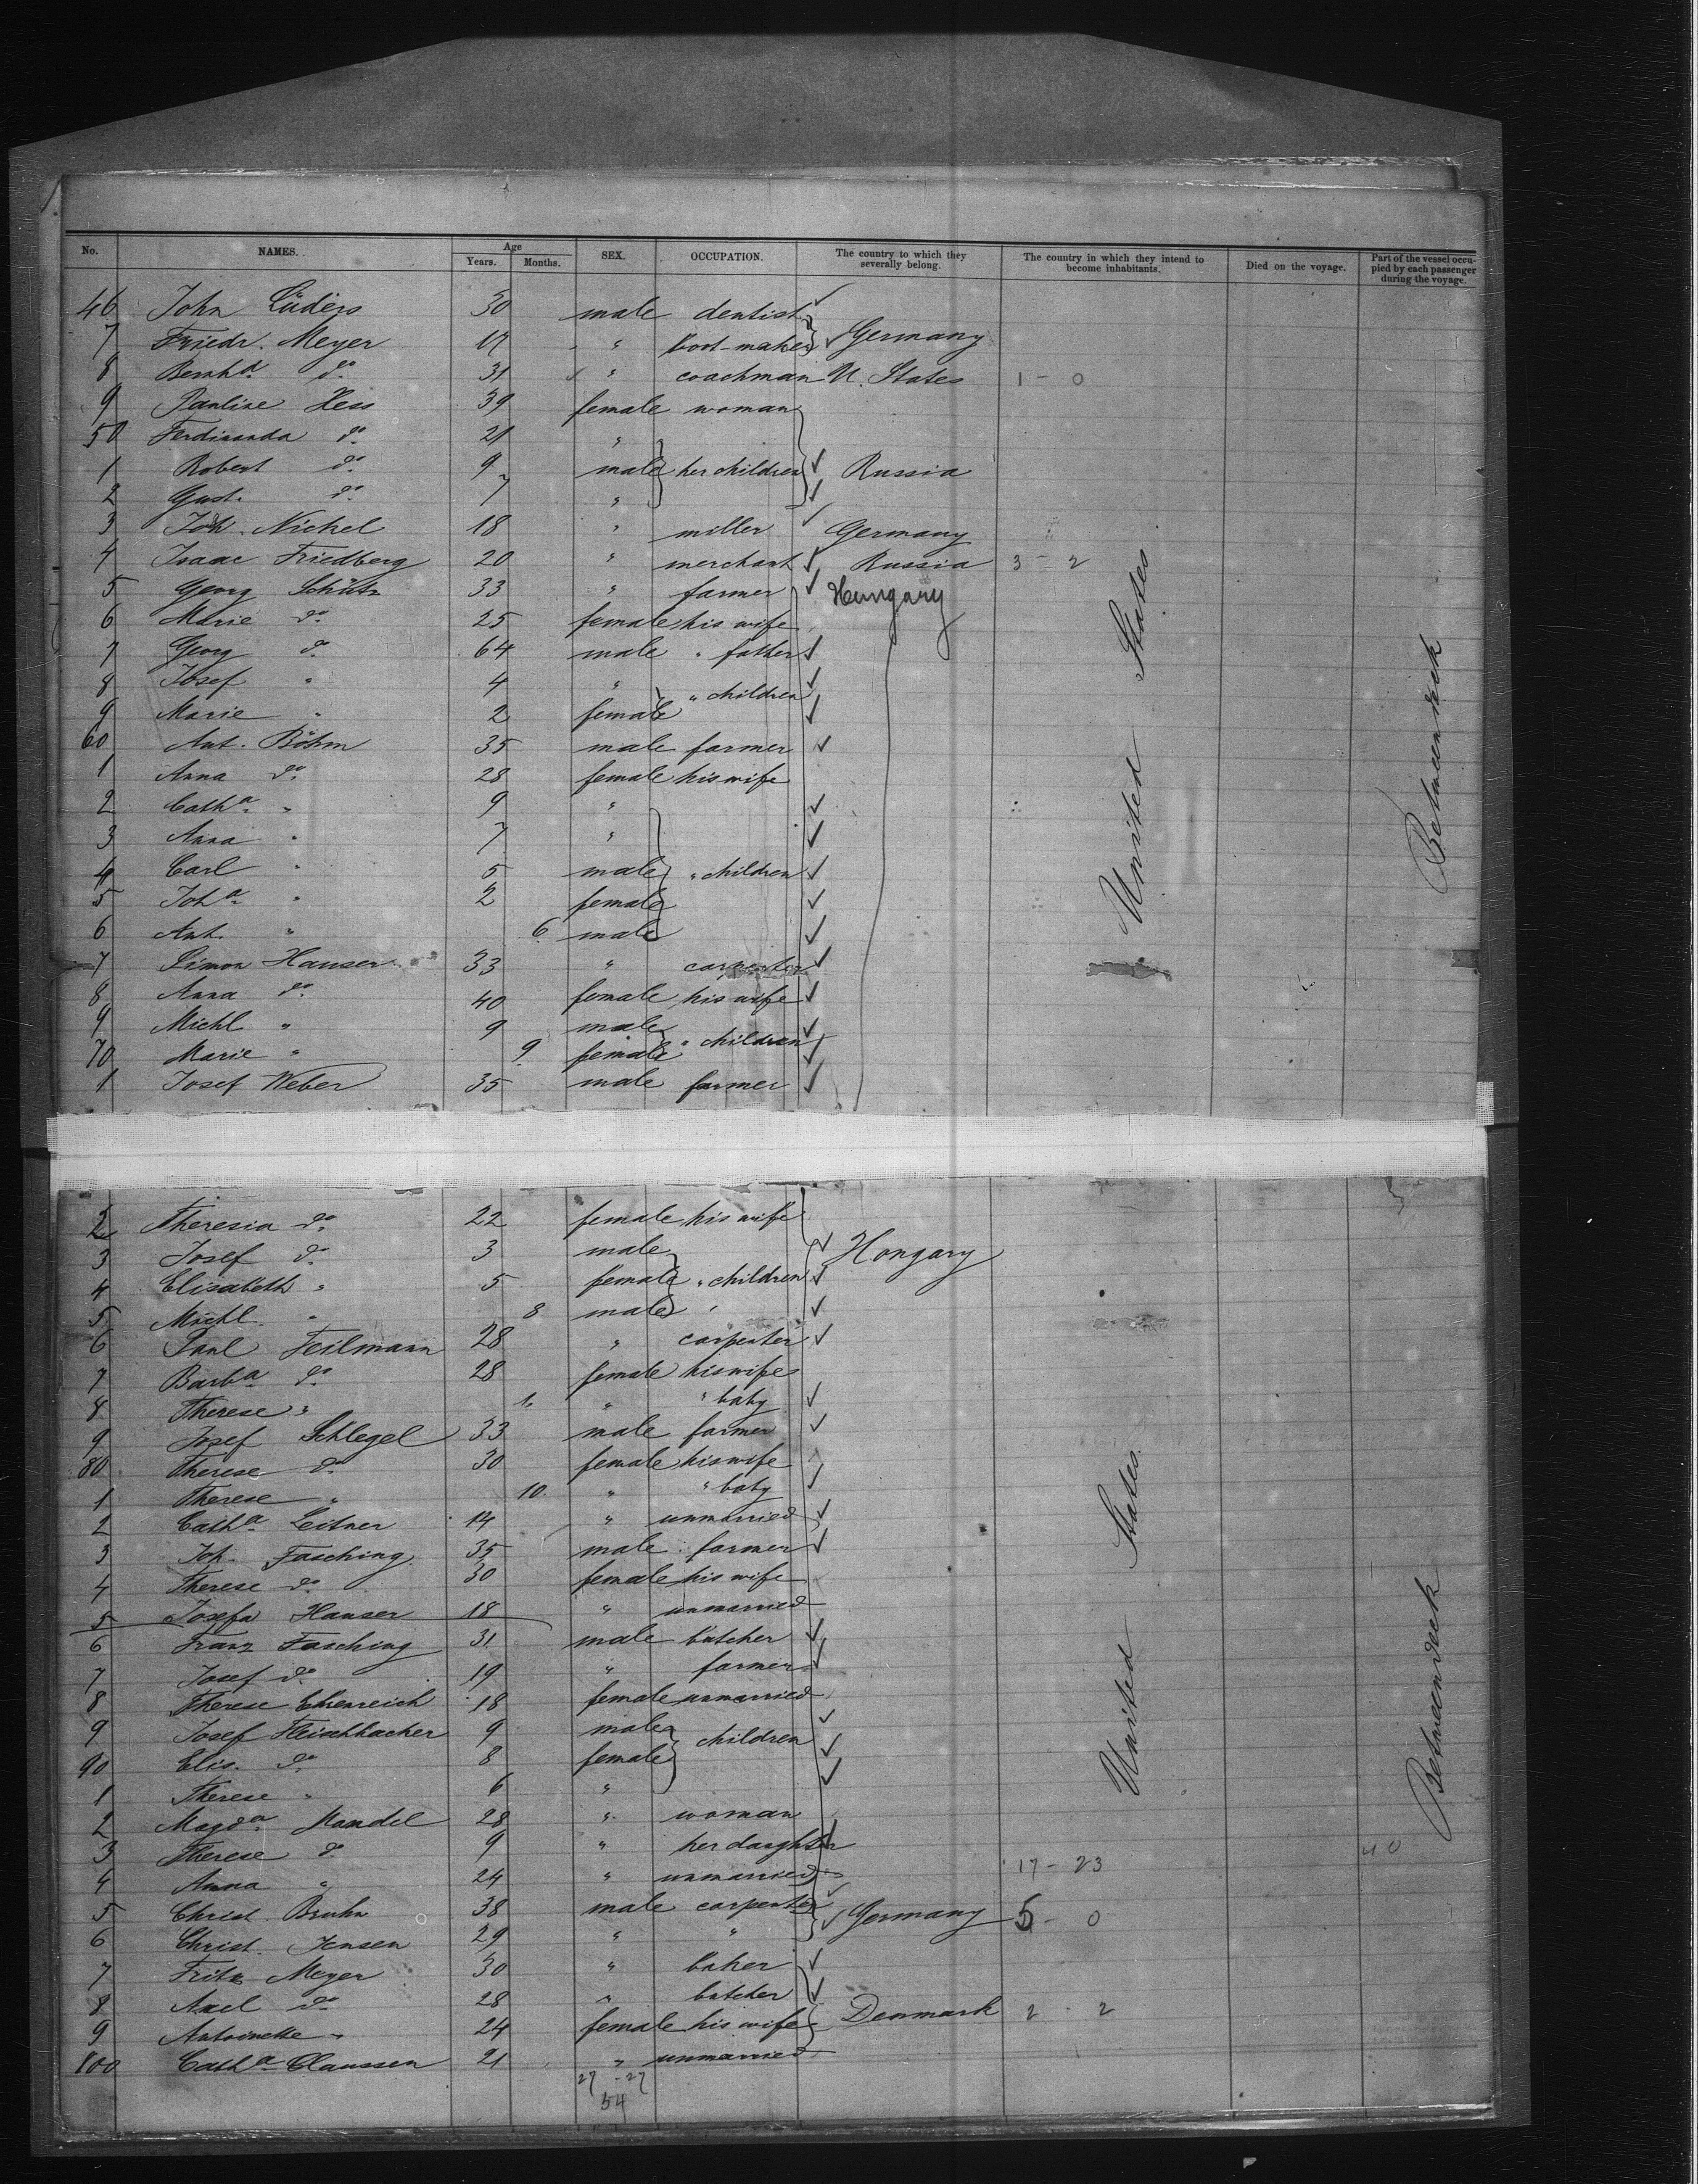 No. NAMES. Age Years. Months. SEX. OCCUPATION. The country to which they severally belong. The country in which they intend to become inhabitants. Died on the voyage. Part of the vessel occupied by each passenger during the voyage.
46 John Lüders 30 male dentist
7 Friedr. Meyer 17 " boot-maker Germany
8 Bernhᵃ dº 31 " coachman U. States 1 - 0
9 Pauline Hess 39 female woman
50 Ferdinanda dº 21 "
1 Robert dº 9 male her children Russia
2 Gust. dº 7 "
3 Joh. Nickel 18 " miller Germany
4 Isaac Friedberg 20 " merchant Russia 3 - 2
5 Georg Schütz 33 " farmer Hungary
6 Marie dº 25 female his wife
7 Georg dº 64 male " father
8 Josef " 4 " " children
9 Marie " 2 female
60 Ant. Böhm 35 male farmer
1 Anna dº 28 female his wife
2 Cathᵃ " 9 "
3 Anna " 7 "
4 Carl " 5 male " children
5 Johᵃ " 2 female
6 Ant. " 6 male
7 Simon Hauser 33 " carpenter
8 Anna dº 40 female his wife
9 Michl " 9 male " children
70 Marie " 9 female
1 Josef Weber 35 male farmer
United States
Betweendeck
2 Theresia dº 22 female his wife
3 Josef dº 3 male Hongary
4 Elisabeth " 5 female " children
5 Michl. " 8 male "
6 Paul Feilmann 28 " carpenter
7 Barbᵃ dº 28 female his wife
8 Therese " 1 " " baby
9 Josef Schlegel 33 male farmer
80 Therese dº 30 female his wife
1 Therese " 10 " " baby
2 Cathᵃ Leitner 14 " unmarried
3 Joh. Fasching 35 male farmer
4 Therese dº 30 female his wife
5 Josefa Hauser 18 " unmarried
6 Franz Fasching 31 male butcher
7 Josef dº 19 " farmer
8 Therese Ehrenreich 18 female unmarried
9 Josef Fleischhacker 9 male children
90 Elis. dº 8 female
1 Therese " 6 "
2 Magdᵃ Mandel 28 " woman
3 Therese dº 9 " her daughter 40
4 Anna " 24 " unmarried 17 - 23
5 Christ. Bruhn 38 male carpenter Germany 5 - 0
6 Christ. Jensen 29 " "
7 Fritz Meyer 30 " baker
8 Axel dº 28 " butcher
9 Antoinette " 24 female his wife Denmark 2 - 2
100 Cathᵃ Claussen 21 " unmarried
27 - 27
54
United States
Betweendeck